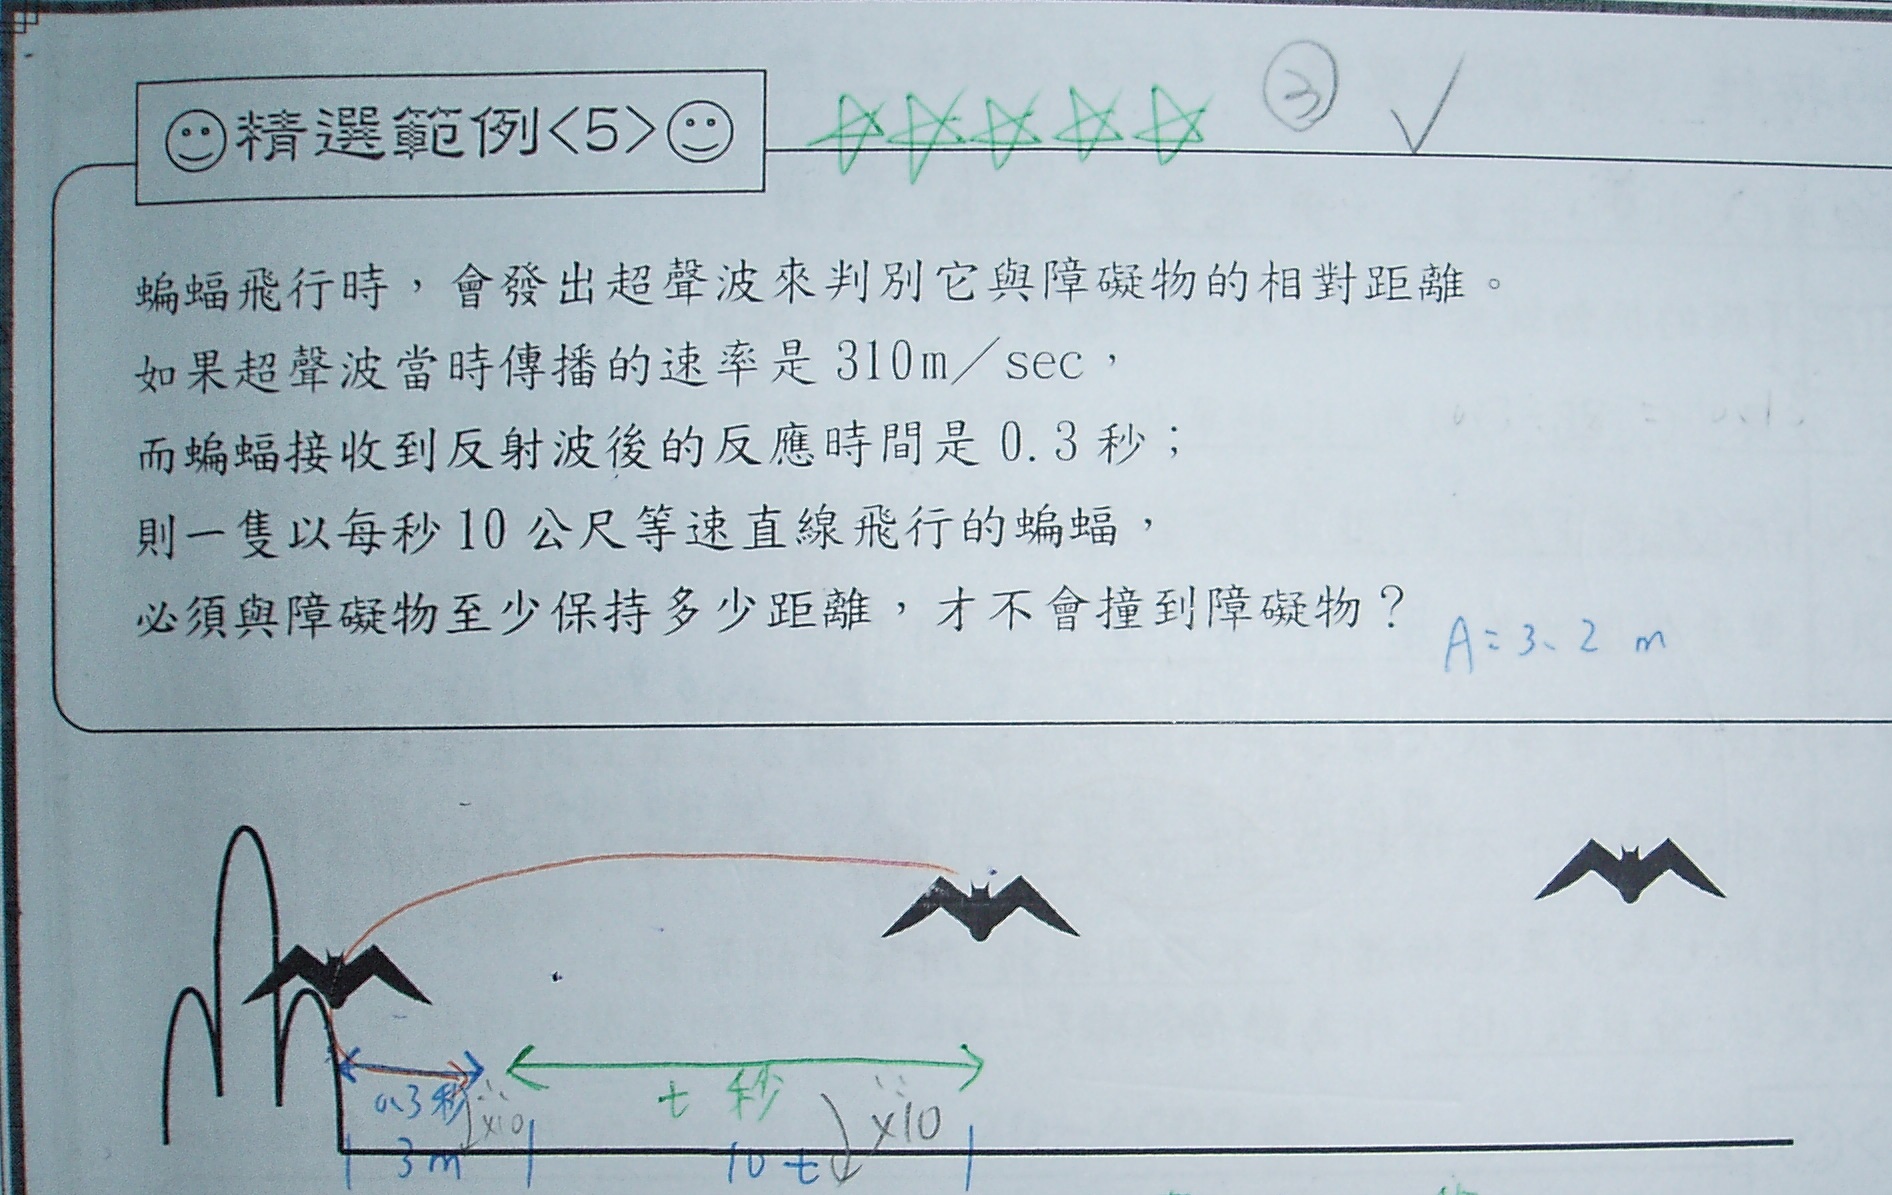 精選範例<5> ③
蝙蝠飛行時，會發出超聲波來判別它與障礙物的相對距離。
如果超聲波當時傳播的速率是 310m／sec，
而蝙蝠接收到反射波後的反應時間是 0.3 秒；
則一隻以每秒 10 公尺等速直線飛行的蝙蝠，
必須與障礙物至少保持多少距離，才不會撞到障礙物？
A=3.2 m
0.3秒 ×10 t 秒 ×10
3m 10t